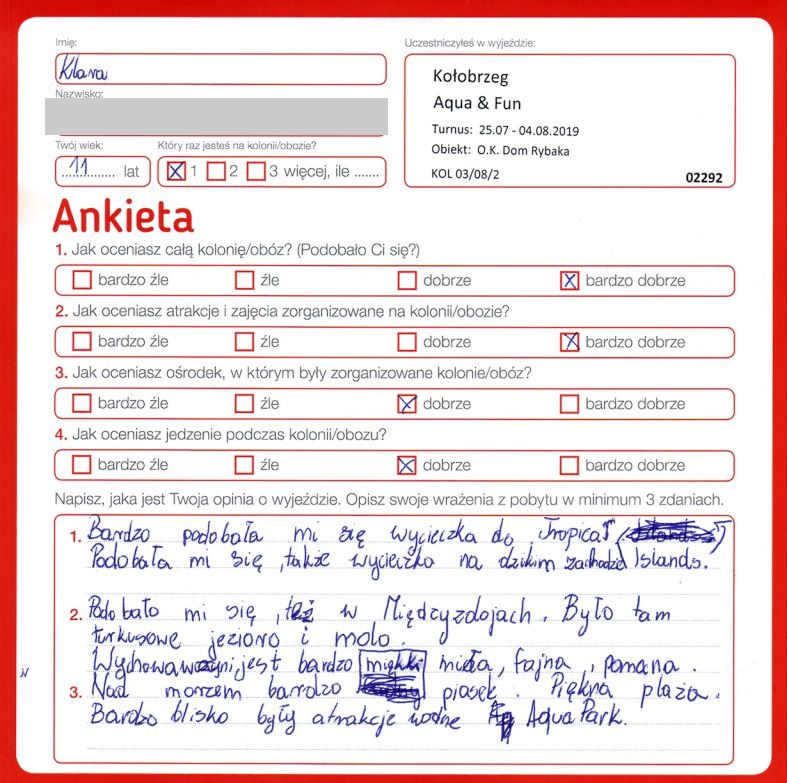 Imię:
Klara
Nazwisko:
Uczestniczyłeś w wyjeździe:
Kołobrzeg
Aqua & Fun
Turnus: 25.07 - 04.08.2019
Obiekt: O.K. Dom Rybaka
KOL 03/08/2
02292
Twój wiek:
11 lat
Który raz jesteś na kolonii/obozie?
1 2 3 więcej, ile .......
Ankieta
1. Jak oceniasz całą kolonię/obóz? (Podobało Ci się?)
bardzo źle źle dobrze bardzo dobrze
2. Jak oceniasz atrakcje i zajęcia zorganizowane na kolonii/obozie?
bardzo źle źle dobrze bardzo dobrze
3. Jak oceniasz ośrodek, w którym były zorganizowane kolonie/obóz?
bardzo źle źle dobrze bardzo dobrze
4. Jak oceniasz jedzenie podczas kolonii/obozu?
bardzo źle źle dobrze bardzo dobrze
Napisz, jaka jest Twoja opinia o wyjeździe. Opisz swoje wrażenia z pobytu w minimum 3 zdaniach.
1. Bardzo podobała mi się wycieczka do Tropical
Podobała mi się, także wycieczka na dzikim zachodzie Islands.
2. Podobało mi się, też w Międzyzdojach. Było tam
turkusowe jezioro i molo.
jest bardzo miękki miła, fajna, pomana.
3. Nad morzem bardzo piasek. Piękna plaża.
Bardzo blisko były atrakcje wodne Aqua Park.